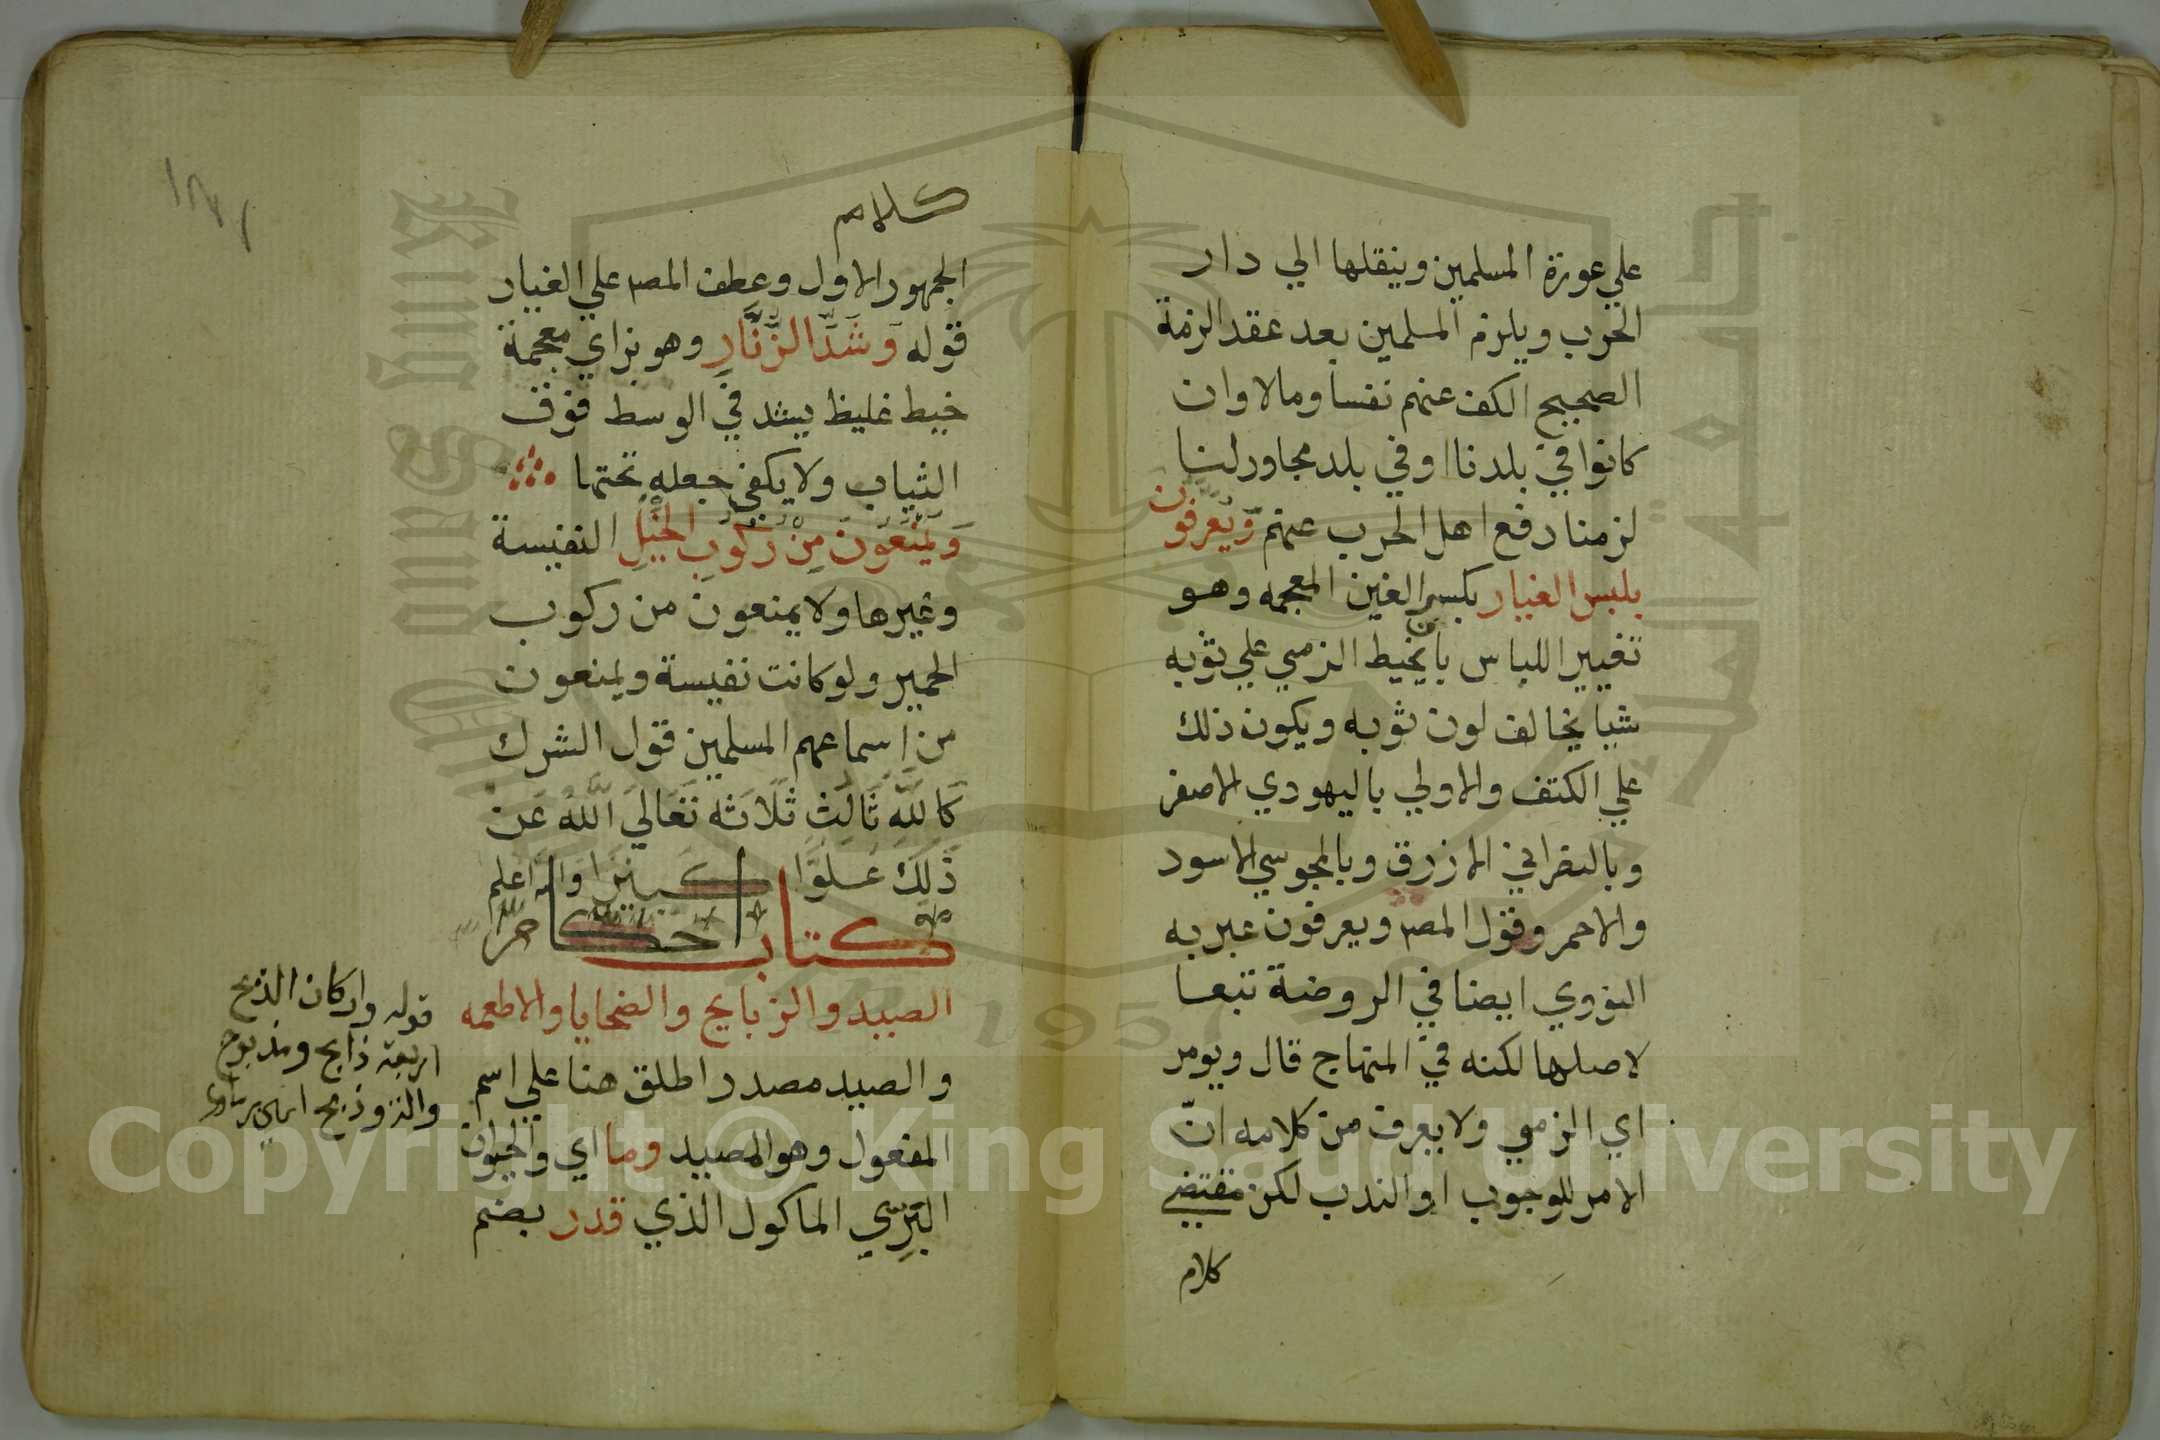 علي عورة المسلمين وينقلها الي دار
الحرب ويلزم المسلمين بعد عقد الزمة
الصحيح الكف عنهم نفسا ومالا وان
كانوا في بلدنا او في بلد مجاور لنا
لزمنا دفع اهل الحرب عنهم ويعرفون
بلبس الغيار بكسر الغين المعجمه وهو
تغيير اللباس بان يخيط الزمي علي ثوبه
شيا يخالف لون ثوبه ويكون ذلك
علي الكتف والاولي باليهودي الاصفر
وبالنصراني الازرق وبالمجوسي الاسود
والاحمر وقول المصـ ويعرفون عبر به
النووي ايضا في الروضة تبعا
لاصلها لكنه في المنهاج قال ويومر
اي الزمي ولا يعرف من كلامه انّ
الامر للوجوب او الندب لكن مقتضي
كلام
كلام
الجمهور الاول وعطف المصـ علي الغيار
قوله وَشَدَّ الزُّنَّارِ وهو بزاي معجمة
خيط غليظ يشد في الوسط فوق
الثياب ولا يكفي جعله تحتها
وَيُمْنَعُونَ مِنْ رُكُوبِ الخَيْلِ النفيسة
وغيرها ولا يمنعون من ركوب
الحمير ولو كانت نفيسة ويمنعون
من اسماعهم المسلمين قول الشرك
كَاللَّهِ ثَالِثِ ثَلَاثَه تَعَالَي اللَّهُ عَنْ
ذَلِكَ عُلُوًّا كَبِيْرًا والله اعلم
كتاب احكام
الصيد والزبايح والضحايا والاطعمه
والصيد مصدر اطلق هنا علي اسم
المفعول وهو المصيد وما اي والحيوان
البَرِّي الماكول الذي قدر بضم
قوله واركان الذبح
اربعة ذابح ومذبوح
والة وذبح
Copyright © King Saud University
King Saud University
1957